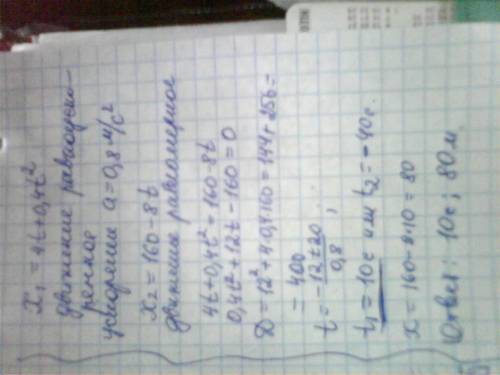 x₁ = 4t+0,4t²
движение равноуско-
ренное
ускорение a=0,8 м/с²
x₂ = 160-8t
движение равномерное
4t+0,4t² = 160-8t
0,4t²+12t-160=0
D=12²+4·0,4·160=144+256=
= 400
t = -12±20 / 0,8 ,
t₁=10с или t₂=-40с.
x = 160-8·10 = 80
Ответ: 10с; 80м